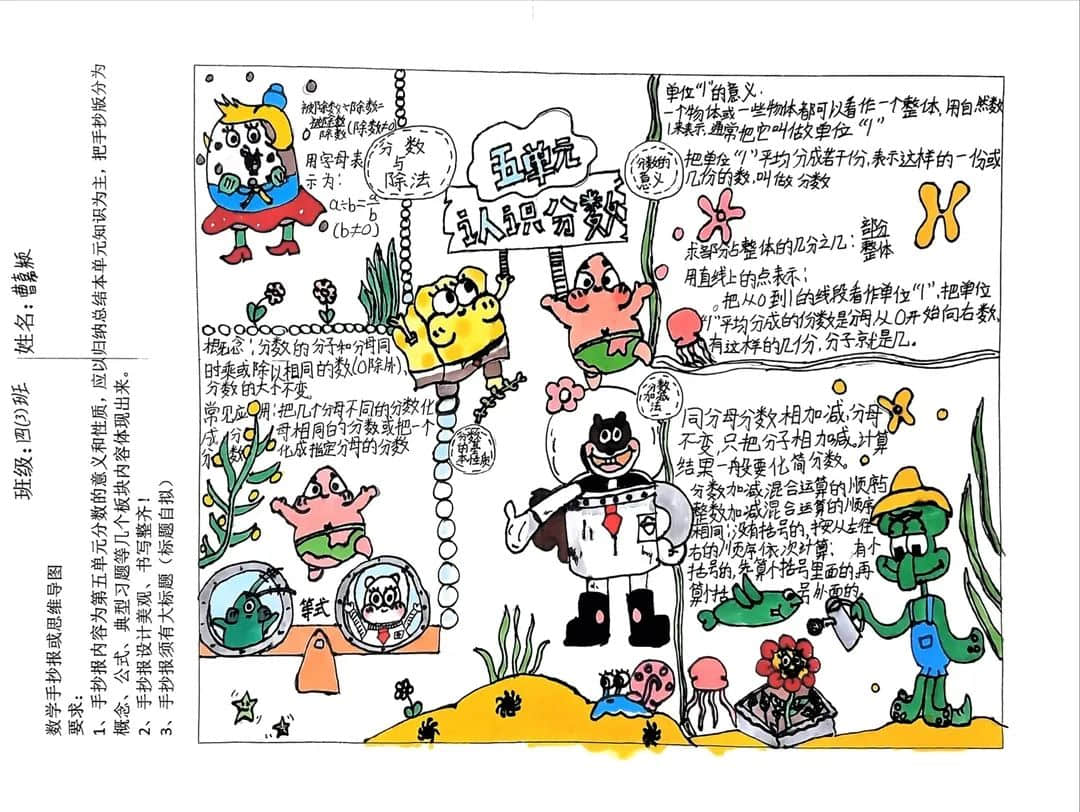 数学手抄报或思维导图
要求:
1、手抄报内容为第五单元分数的意义和性质,应以归纳总结本单元知识为主,把手抄版分为
概念、公式、典型习题等几个板块内容体现出来。
2、手抄报设计美观、书写整齐!
3、手抄报须有大标题(标题自拟)
班级:四(3)班 姓名:曹
五单元
认识分数
分数
与
除法
被除数÷除数=
被除数
除数 (除数≠0)
用字母表
示为:
a÷b=a/b
(b≠0)
分数的
意义
单位"1"的意义:
一个物体或一些物体都可以看作一个整体,用自然数
1来表示,通常把它叫做单位"1"
把单位"1"平均分成若干份,表示这样的一份或
几份的数,叫做分数
求部分占整体的几分之几: 部分
整体
用直线上的点表示;
把从0到1的线段看作单位"1",把单位
"1"平均分成的份数是分母从0开始向右数,
有这样的几份,分子就是几。
概念;分数的分子和分母同
时乘或除以相同的数(0除外),
分数的大小不变。
常见应用:把几个分母不同的分数化
成 分母相同的分数或把一个
分数化成指定分母的分数
分数
的基
本性质
等式
分数
加减
法
同分母分数相加减,分母
不变,只把分子相加减。计算
结果一般要化简分数。
分数加减混合运算的顺序与
整数加减混合运算的顺序
相同;没有括号的,按从左往
右的顺序依次计算; 有小
括号的,先算小括号里面的再
算括 号外面的。